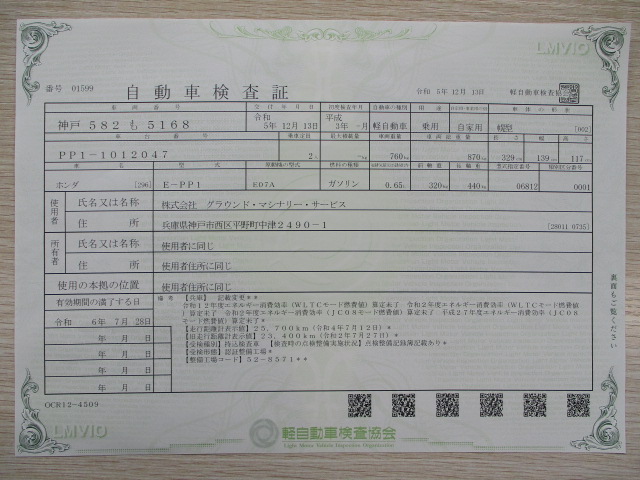 LMVIO
番号 01599
自動車検査証
令和 5年12月13日
軽自動車検査協会
車両番号 交付年月日 初度検査年月 自動車の種別 用途 自家用・事業用の別 車体の形状
神戸 582 も 5168 令和 5年12月13日 平成 3年 -月 軽自動車 乗用 自家用 幌型 [002]
車台番号 乗車定員 最大積載量 車両重量 車両総重量 長さ 幅 高さ
PP1-1012047 2人 -kg 760kg 870kg 329cm 139cm 117cm
車名 型式 原動機の型式 燃料の種類 総排気量又は定格出力 前軸重 後軸重 型式指定番号 類別区分番号
ホンダ [296] E-PP1 E07A ガソリン 0.65L 320kg 440kg 06812 0001
使用者 氏名又は名称 株式会社 グラウンド・マシナリー・サービス
住所 兵庫県神戸市西区平野町中津2490-1 [28011 0735]
所有者 氏名又は名称 使用者に同じ
住所 使用者住所に同じ
使用の本拠の位置 使用者住所に同じ
有効期間の満了する日
令和 6年 7月 28日
年 月 日
年 月 日
年 月 日
年 月 日
備考 【兵庫】 記載変更**
令和12年度エネルギー消費効率(WLTCモード燃費値)算定未了 令和2年度エネルギー消費効率(WLTCモード燃費値
)算定未了 令和2年度エネルギー消費効率(JC08モード燃費値)算定未了 平成27年度エネルギー消費効率(
JC08モード燃費値)算定未了*
【走行距離計表示値】25,700km(令和4年7月12日)*
【旧走行距離計表示値】23,400km(令和2年7月27日)*
【受検種別】持込検査車 【検査時の点検整備実施状況】点検整備記録簿記載あり*
【受検形態】認証整備工場*
【整備工場コード】52-8571**
裏面もご覧ください
OCR12-4509
LMVIO
軽自動車検査協会
Light Motor Vehicle Inspection Organization